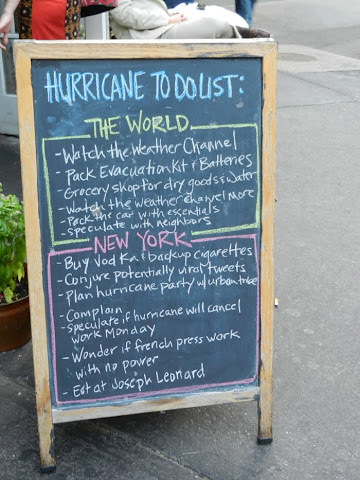 HURRICANE TO DO LIST:
THE WORLD
- Watch the Weather Channel
- Pack Evacuation Kit & Batteries
- Grocery shop for dry goods & water
- Watch the weather channel more
- Pack the car with essentials
- speculate with neighbors
NEW YORK
- Buy Vodka & backup cigarettes
- Conjure potentially viral tweets
- Plan hurricane party w/ urban tribe
- Complain
- speculate if hurricane will cancel
work Monday
- Wonder if french press work
with no power
- Eat at Joseph Leonard